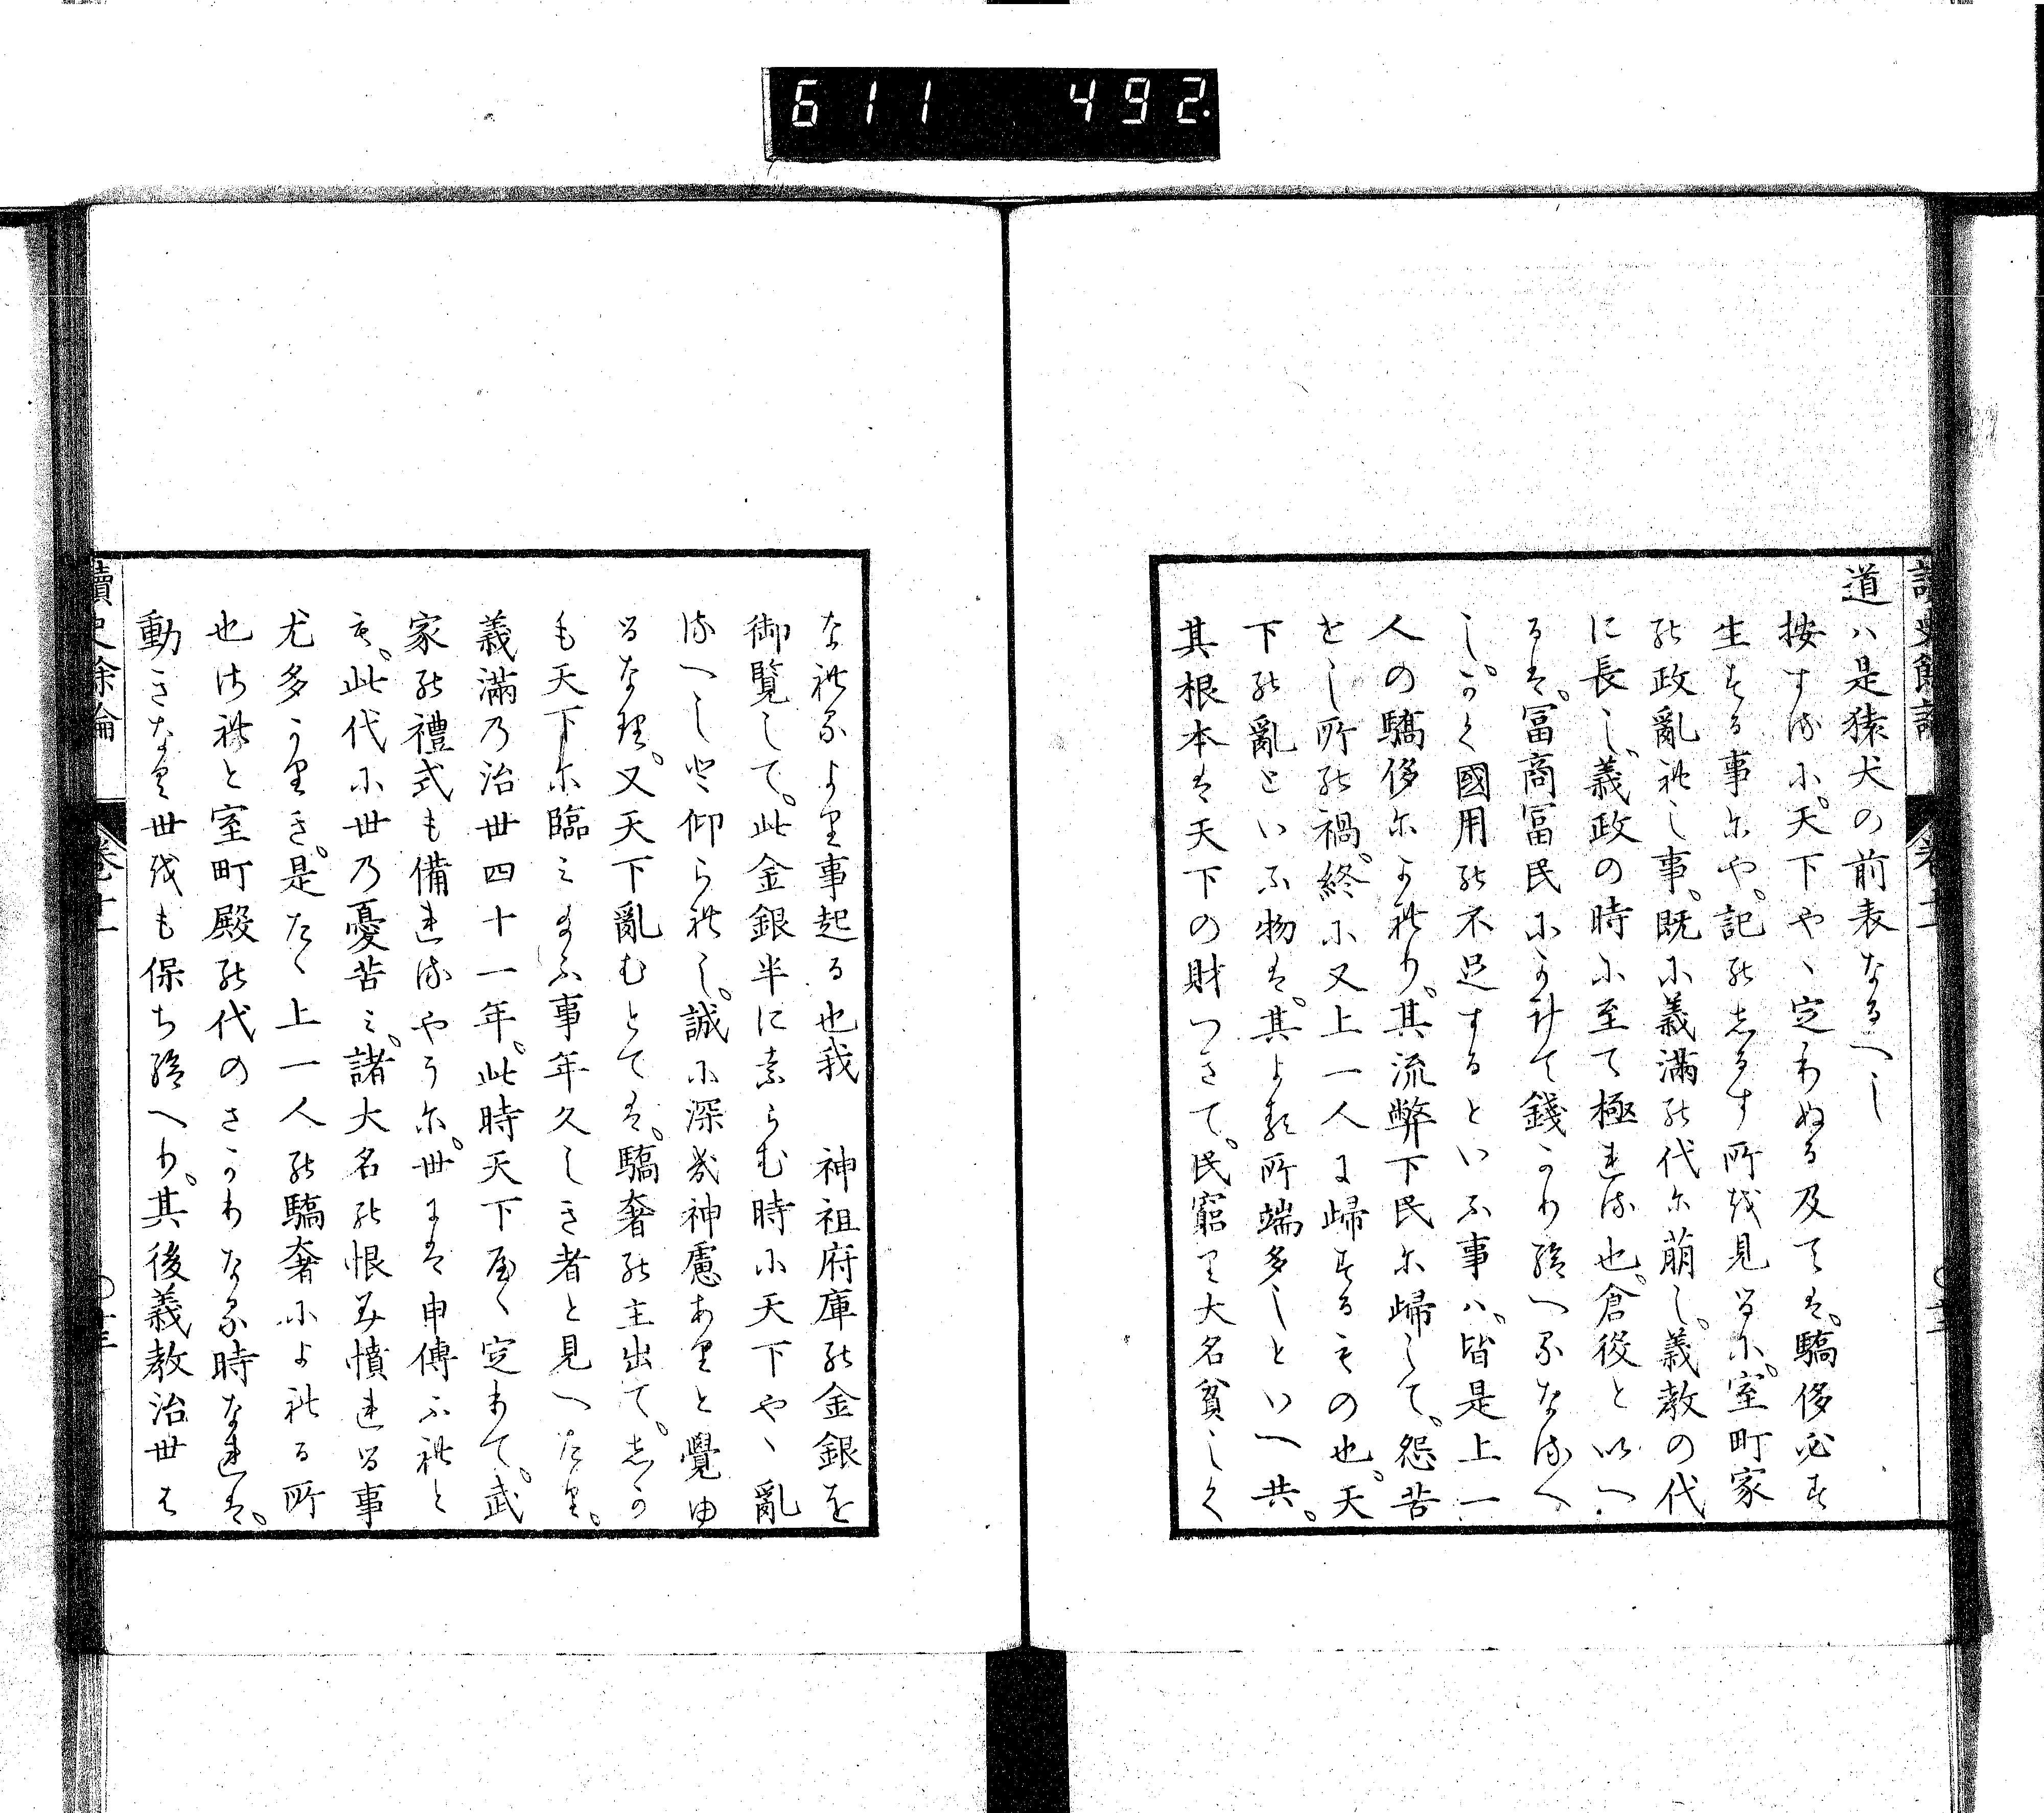 611 492.
道ハ是猿犬の前表なるへし
按するに天下やゝ定りぬる及てハ驕侈必す
生する事にや記のしるす所を見るに室町家
の政亂れし事既に義滿の代に萌し義教の代
に長し義政の時に至て極れる也倉役と以へ
るハ冨商冨民にかけて錢かり給へるなるへ
しかく國用の不足するといふ事ハ皆是上一
人の驕侈によれり其流弊下民に歸して怨苦
をし所の禍終に又上一人に歸するもの也天
下の亂といふ物ハ其よる所端多しといへ共
其根本ハ天下の財つきて民窮り大名貧しく
なれるより事起る也我 神祖府庫の金銀を
御覧して此金銀半に素らむ時に天下やゝ亂
るへしと仰られし誠に深き神慮ありと覺ゆ
るなり又天下亂むとてハ驕奢の主出てしか
も天下に臨ミ給ふ事年久しき者と見へたり
義滿乃治世四十一年此時天下屋ゝ定りて武
家の禮式も備れるやうに世にハ申傳ふれと
も此代に世乃憂苦ミ諸大名の恨み憤れる事
尤多かりき是たゝ上一人の驕奢によれる所
也されと室町殿の代のさかりなる時なれハ
動きなり世をも保ち給へり其後義教治世は
讀史餘論 卷十一